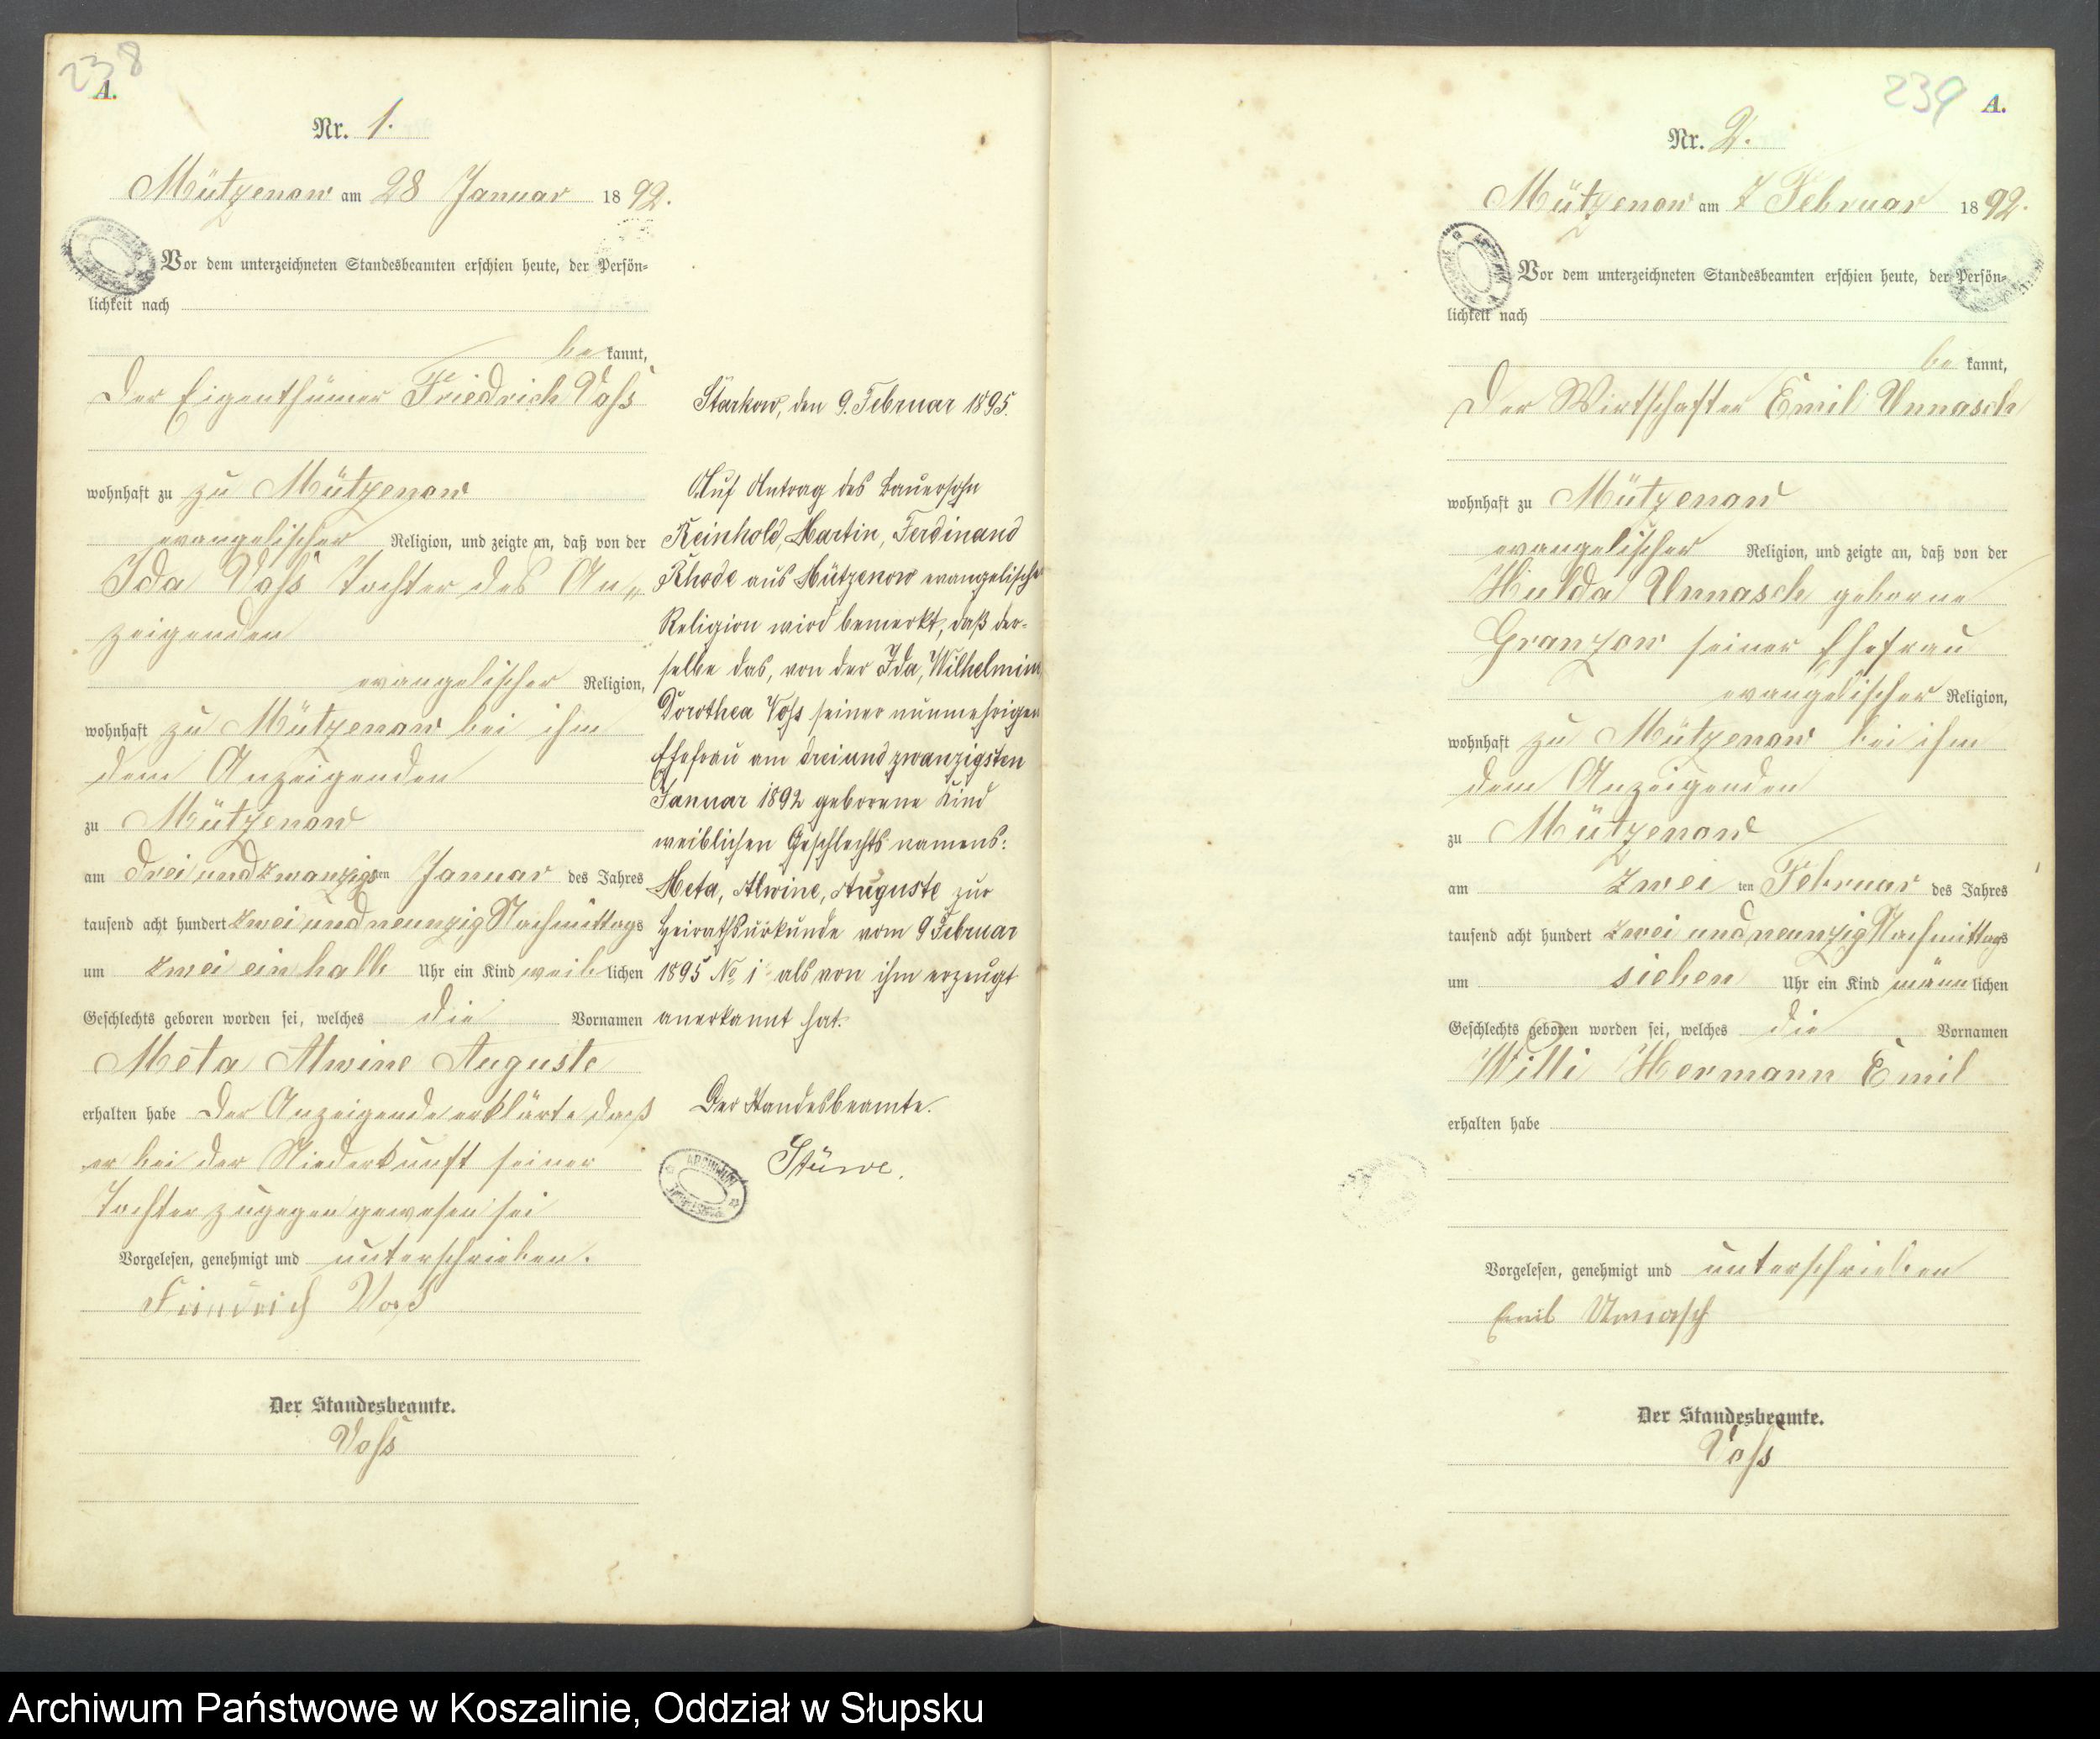 238
A.
Nr. 1.
Mützenow am 28 Januar 1892.
Vor dem unterzeichneten Standesbeamten erschien heute, der Persön-
lichkeit nach
bekannt,
Der Eigenthümer Friedrich Voss
wohnhaft zu zu Mützenow
evangelischer Religion, und zeigte an, daß von der
Ida Voss Tochter des An„
zeigenden
evangelischer Religion,
wohnhaft zu Mützenow bei ihm
dem Anzeigenden
zu Mützenow
am drei und zwanzigsten Januar des Jahres
tausend acht hundert zwei und neunzig Nachmittags
um zwei ein halb Uhr ein Kind weiblichen
Geschlechts geboren worden sei, welches die Vornamen
Meta Alwine Auguste
erhalten habe Der Anzeigende erklärte, daß
er bei der Niederkunft seiner
Tochter zugegen gewesen sei
Vorgelesen, genehmigt und unterschrieben.
Friedrich Voss
Der Standesbeamte.
Voss
Starkow, den 9. Februar 1895.
Auf Antrag des Bauersohn
Reinhold, Martin, Ferdinand
Rhode aus Mützenow evangelischer
Religion wird bemerkt, daß der-
selbe das, von der Ida, Wilhelmine,
Dorothea Voss seiner nunmehrigen
Ehefrau am dreiundzwanzigsten
Januar 1892 geborene Kind
weiblichen Geschlechts namens:
Meta, Alwine, Auguste zur
Heirathsurkunde vom 9 Februar
1895 No 1 als von ihm erzeugt
anerkannt hat.
Der Standesbeamte.
Stüwe.
239
A.
Nr. 2.
Mützenow am 7 Februar 1892.
Vor dem unterzeichneten Standesbeamten erschien heute, der Persön-
lichkeit nach
bekannt,
Der Wirtschafter Emil Unnasch
wohnhaft zu Mützenow
evangelischer Religion, und zeigte an, daß von der
Hulda Unnasch geborne
Granzow seiner Ehefrau
evangelischer Religion,
wohnhaft zu Mützenow bei ihm
dem Anzeigenden
zu Mützenow
am zwei ten Februar des Jahres
tausend acht hundert zwei und neunzig Nachmittags
um sieben Uhr ein Kind männlichen
Geschlechts geboren worden sei, welches die Vornamen
Willi Hermann Emil
erhalten habe
Vorgelesen, genehmigt und unterschrieben
Emil Unnasch
Der Standesbeamte.
Voss
Archiwum Państwowe w Koszalinie, Oddział w Słupsku